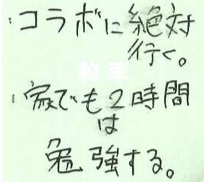 ・コラボに絶対
行く。
約束
・家でも2時間
は
勉強する。